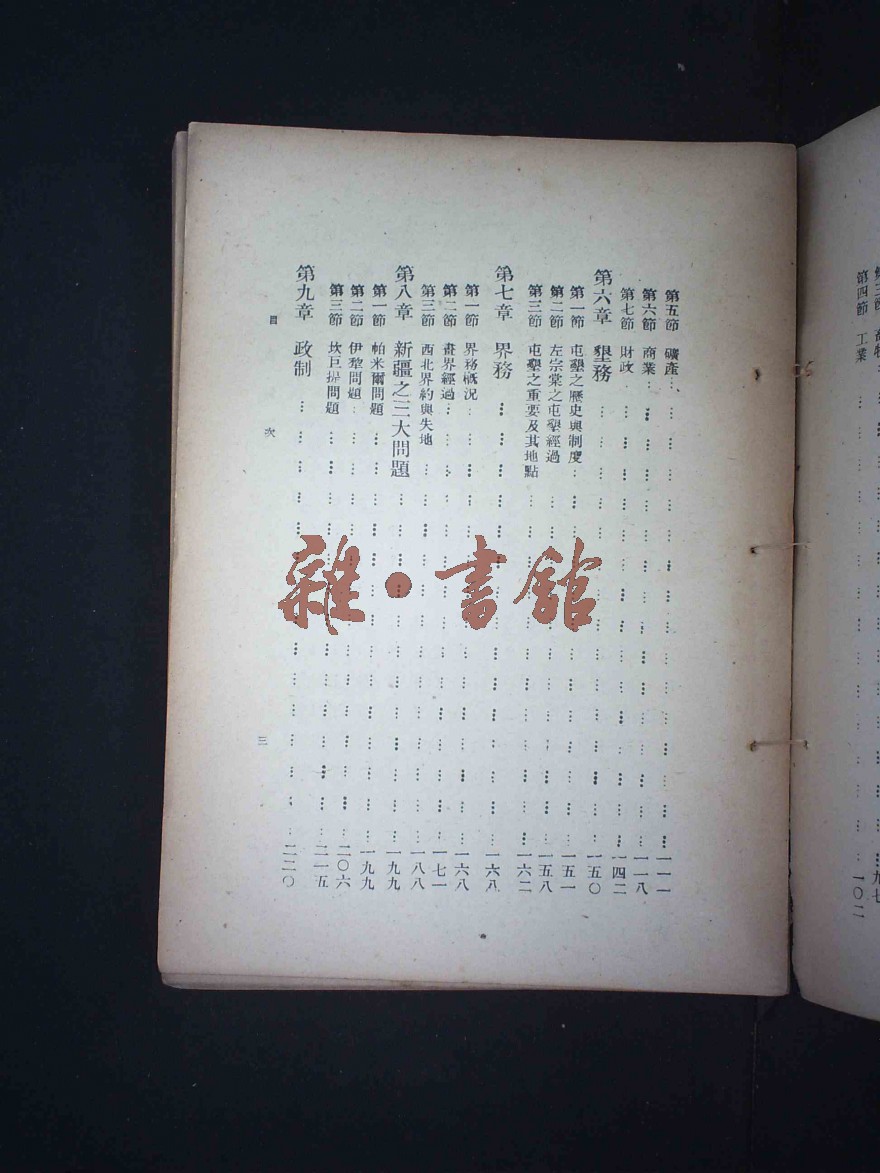 第四節 工業 一〇二
第五節 礦產 一一一
第六節 商業 一一八
第七節 財政 一四二
第六章 墾務 一五〇
第一節 屯墾之歷史與制度 一五一
第二節 左宗棠之屯墾經過 一五八
第三節 屯墾之重要及其地點 一六二
第七章 界務 一六八
第一節 界務概況 一六八
第二節 畫界經過 一七一
第三節 西北界約與失地 一八八
第八章 新疆之三大問題 一九九
第一節 帕米爾問題 一九九
第二節 伊犂問題 二〇六
第三節 坎巨提問題 二一五
第九章 政制 二二〇
目次 三
雜·書館